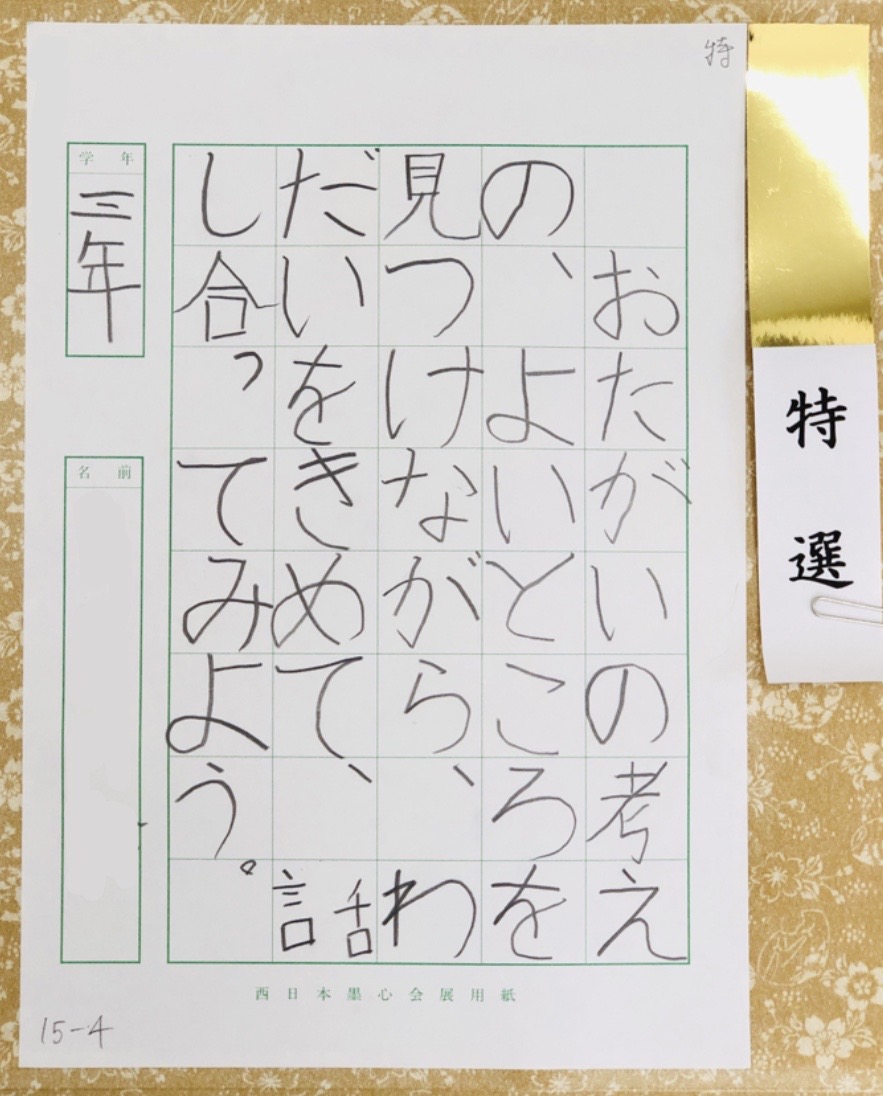 特
おたがいの考え
の、よいところを
見つけながら、わ
だいをきめて、話
し合ってみよう。
学年
三年
名前
西日本墨心会展用紙
15-4
特選